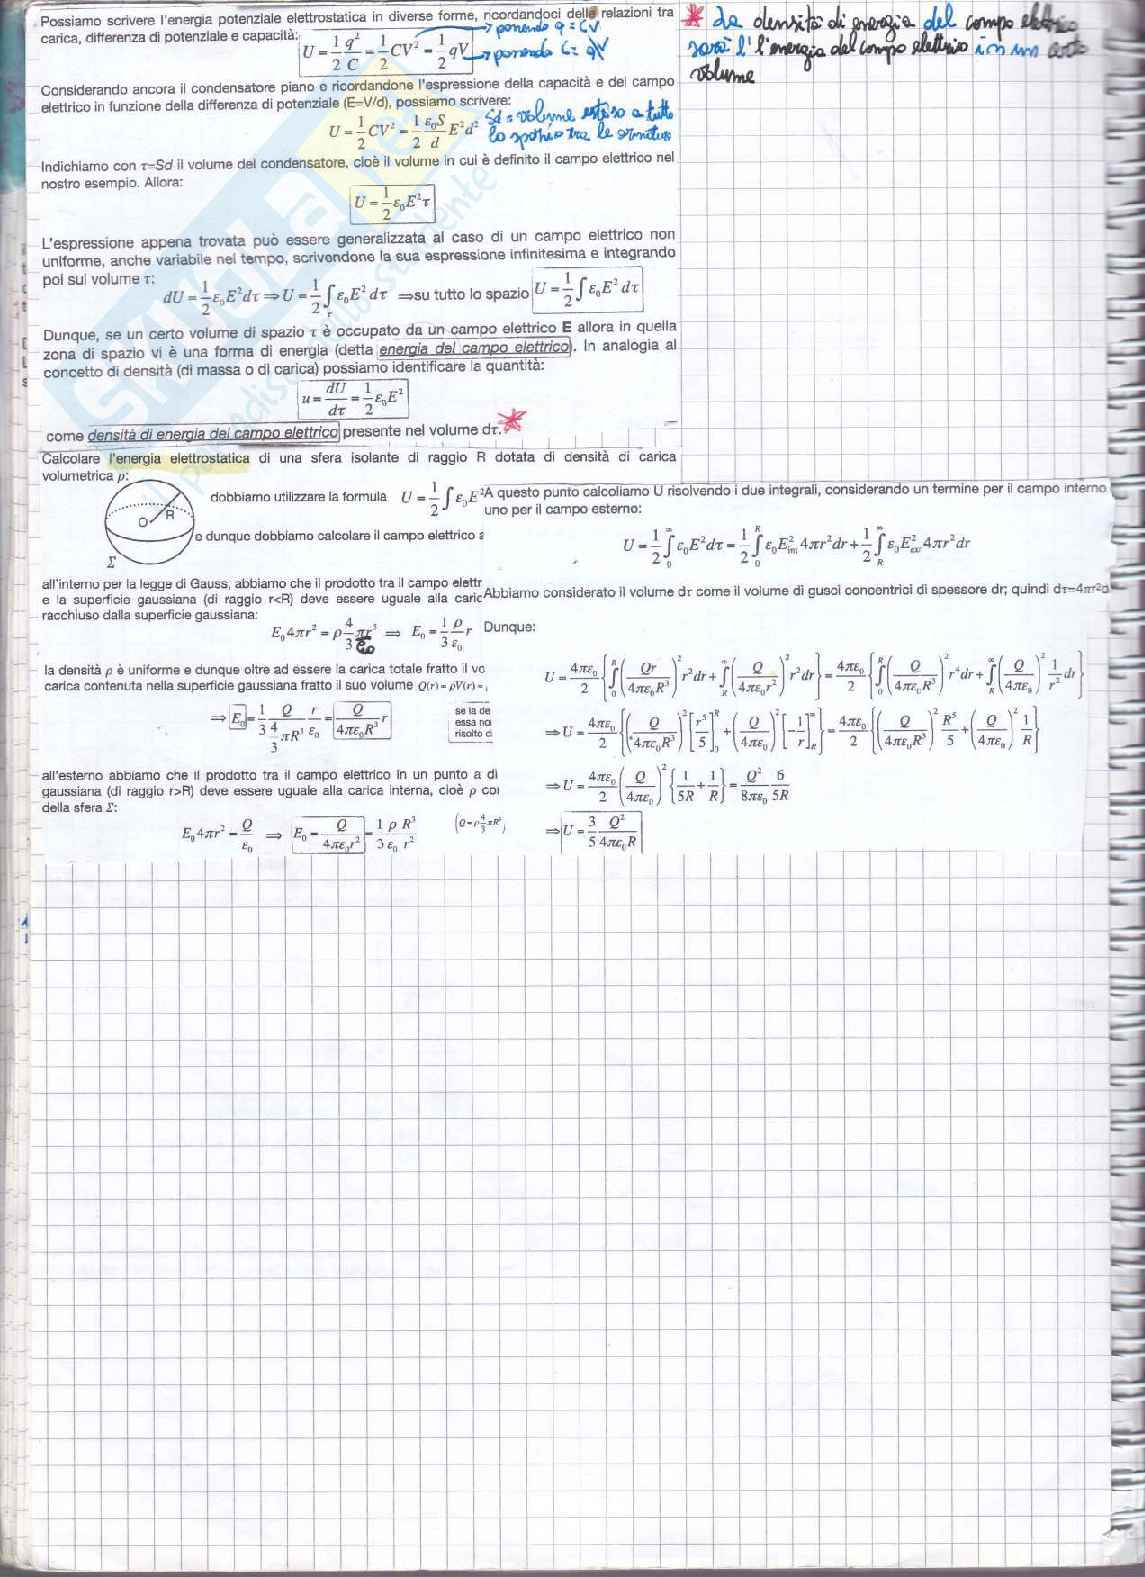 Possiamo scrivere l'energia potenziale elettrostatica in diverse forme, ricordandoci delle relazioni tra
carica, differenza di potenziale e capacità: U = 1/2 q²/C = 1/2 CV² = 1/2 qV
→ ponendo q = CV
→ ponendo C = qV
Considerando ancora il condensatore piano e ricordandone l'espressione della capacità e del campo
elettrico in funzione della differenza di potenziale (E=V/d), possiamo scrivere:
U = 1/2 CV² = 1/2 ε₀S/d E²d²
Sd = volume esteso a tutto
lo spazio tra le armature
Indichiamo con τ=Sd il volume del condensatore, cioè il volume in cui è definito il campo elettrico nel
nostro esempio. Allora:
U = 1/2 ε₀E²τ
L'espressione appena trovata può essere generalizzata al caso di un campo elettrico non
uniforme, anche variabile nel tempo, scrivendone la sua espressione infinitesima e integrando
poi sul volume τ:
dU = 1/2 ε₀E²dτ ⇒ U = 1/2 ∫τ ε₀E² dτ ⇒ su tutto lo spazio U = 1/2 ∫ ε₀E² dτ
Dunque, se un certo volume di spazio τ è occupato da un campo elettrico E allora in quella
zona di spazio vi è una forma di energia (detta energia del campo elettrico). In analogia al
concetto di densità (di massa o di carica) possiamo identificare la quantità:
u = dU/dτ = 1/2 ε₀E²
come densità di energia del campo elettrico presente nel volume dτ.*
* La densità di energia del campo elettrico
sarà l'energia del campo elettrico in un certo
volume
Calcolare l'energia elettrostatica di una sfera isolante di raggio R dotata di densità di carica
volumetrica ρ:
O R
Σ
dobbiamo utilizzare la formula U = 1/2 ∫ ε₀E²
e dunque dobbiamo calcolare il campo elettrico a
all'interno per la legge di Gauss, abbiamo che il prodotto tra il campo elettr
e la superficie gaussiana (di raggio r<R) deve essere uguale alla caric
racchiuso dalla superficie gaussiana:
E₀4πr² = ρ 4/3 πr³/ε₀ ⇒ E₀ = 1/3 ρ/ε₀ r
la densità ρ è uniforme e dunque oltre ad essere la carica totale fratto il vo
carica contenuta nella superficie gaussiana fratto il suo volume Q(r) = ρV(r) =
⇒ E₀ = 1/3 Q/(4/3 πR³) r/ε₀ = Q/(4πε₀R³) r
se la de
essa no
risolto c
all'esterno abbiamo che il prodotto tra il campo elettrico in un punto a di
gaussiana (di raggio r>R) deve essere uguale alla carica interna, cioè ρ
della sfera Σ:
E₀4πr² = Q/ε₀ ⇒ E₀ = Q/(4πε₀r²) = 1/3 ρ/ε₀ R³/r² (Q = ρ 4/3 πR³)
A questo punto calcoliamo U risolvendo i due integrali, considerando un termine per il campo interno
uno per il campo esterno:
U = 1/2 ∫₀^∞ ε₀E²dτ = 1/2 ∫₀^R ε₀E²int 4πr²dr + 1/2 ∫R^∞ ε₀E²ext 4πr²dr
Abbiamo considerato il volume dτ come il volume di gusci concentrici di spessore dr; quindi dτ=4πr²d
Dunque:
U = 4πε₀/2 {∫₀^R (Qr/(4πε₀R³))² r²dr + ∫R^∞ (Q/(4πε₀r²))² r²dr} = 4πε₀/2 {∫₀^R (Q/(4πε₀R³))² r⁴dr + ∫R^∞ (Q/(4πε₀))² 1/r² dr}
⇒ U = 4πε₀/2 {(Q/(4πε₀R³))² [r⁵/5]₀^R + (Q/(4πε₀))² [−1/r]R^∞} = 4πε₀/2 {(Q/(4πε₀R³))² R⁵/5 + (Q/(4πε₀))² 1/R}
⇒ U = 4πε₀/2 (Q/(4πε₀))² {1/5R + 1/R} = Q²/8πε₀ 6/5R
⇒ U = 3/5 Q²/4πε₀R